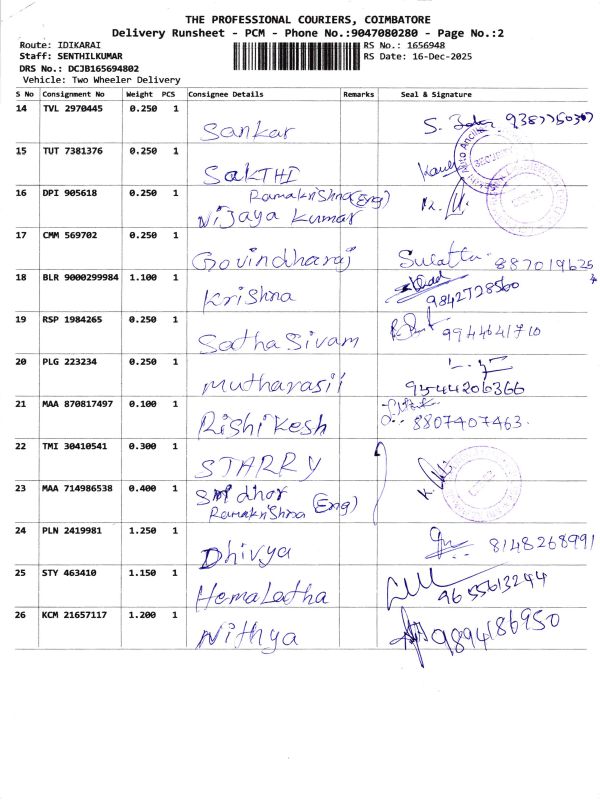 THE PROFESSIONAL COURIERS, COIMBATORE
Delivery Runsheet - PCM - Phone No.:9047080280 - Page No.:2
Route: IDIKARAI RS No.: 1656948
Staff: SENTHILKUMAR RS Date: 16-Dec-2025
DRS No.: DCJB165694802
Vehicle: Two Wheeler Delivery
S No Consignment No Weight PCS Consignee Details Remarks Seal & Signature
14 TVL 2970445 0.250 1
Sankar
15 TUT 7381376 0.250 1
SakTHI
16 DPI 905618 0.250 1 Ramakrishna (Eng)
Vijaya Kumar
17 CMM 569702 0.250 1
Govindharaj 887019625
18 BLR 9000299984 1.100 1
Krishna 9842728560
19 RSP 1984265 0.250 1
SathaSivam 9944641710
20 PLG 223234 0.250 1
Mutharasii 9544206366
21 MAA 870817497 0.100 1
Rishikesh 8807407463
22 TMI 30410541 0.300 1
STARRY
23 MAA 714986538 0.400 1
Ramakrishna (Eng)
24 PLN 2419981 1.250 1
Dhivya 8148268991
25 STY 463410 1.150 1
Hemaletha 9655613244
26 KCM 21657117 1.200 1
Nithya 9894186950